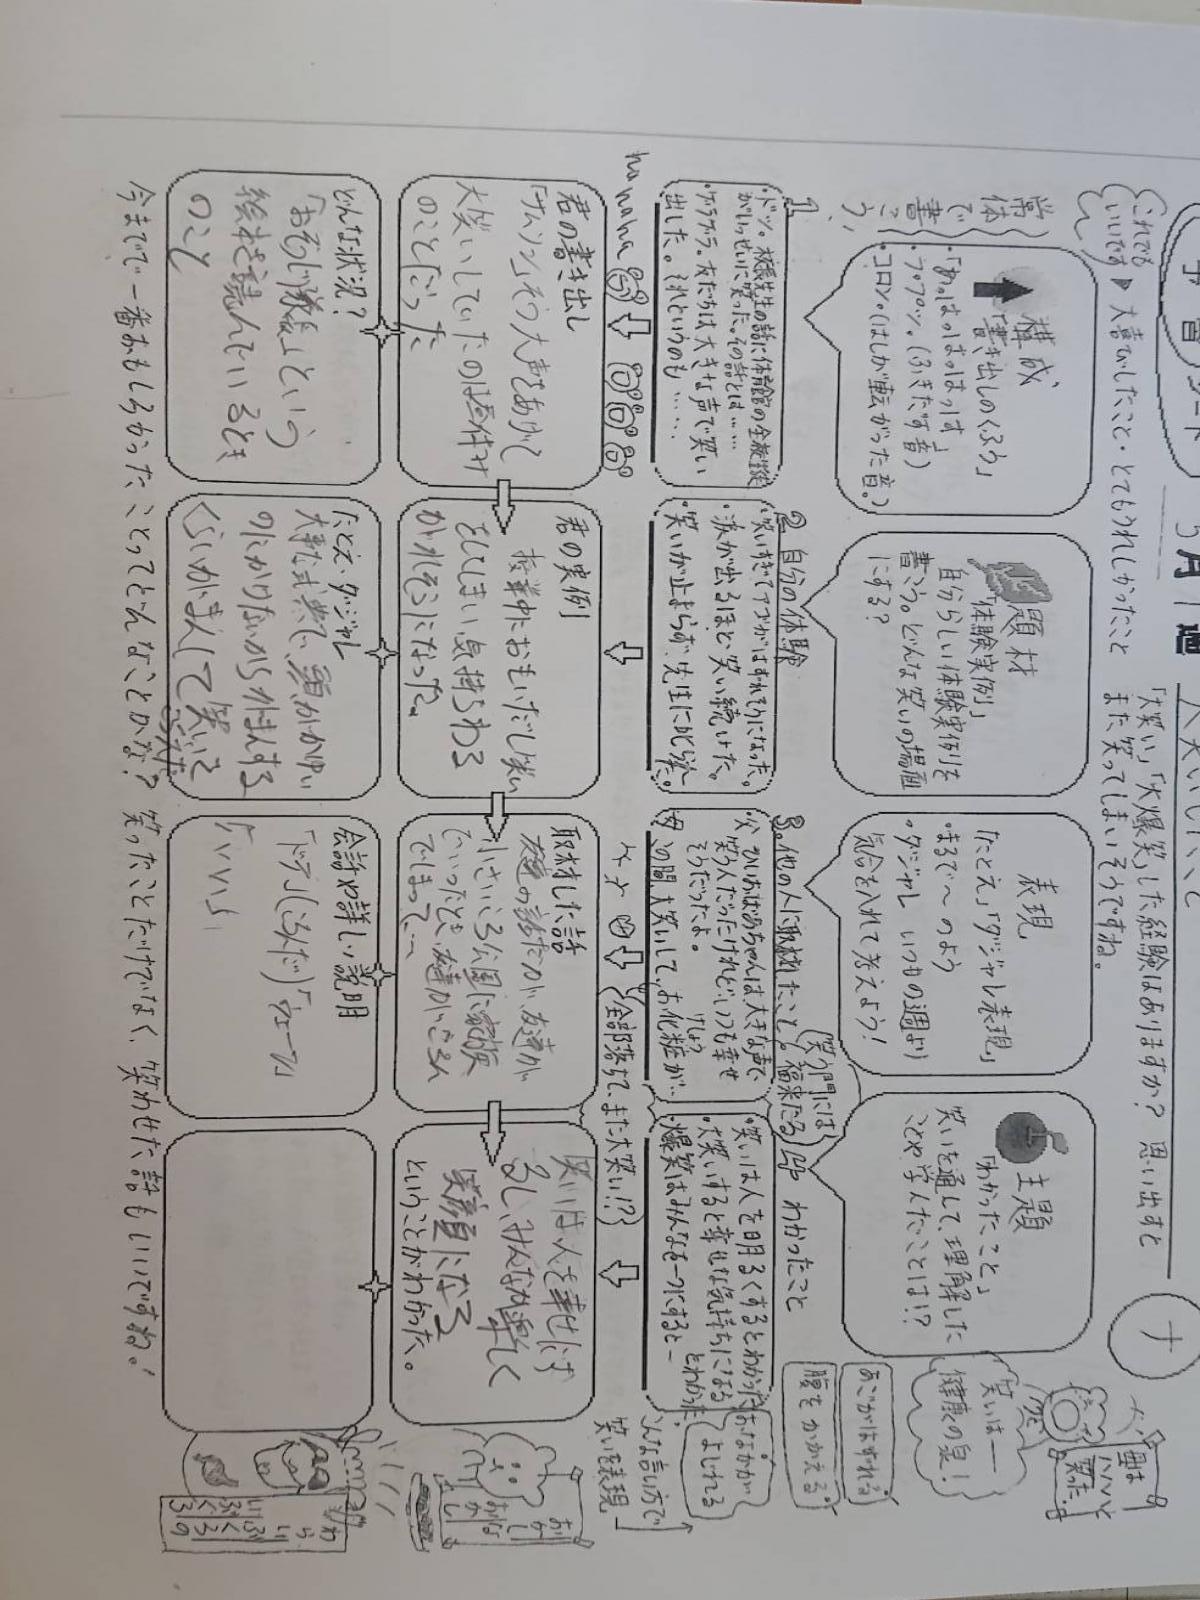 大喜びしたこと・とてもうれしかったこと
これでも
いいです
「大笑い」「大爆笑」した経験はありますか？　思い出すと
また笑ってしまいそうですね。
ナ
常
体
で
書
こ
う
構成
「書き出しのくふう」
・「あっはっはっはっ」
・プププッ。（ふきだす音）
・コロン。（はしが転がった音。）
題材
「体験実例」
自分らしい体験実例を
書こう。どんな笑いの場面
にする？
表現
「たとえ」「ダジャレ表現」
・まるで～のよう
・ダジャレ　いつもの週より
気合を入れて考えよう！
主題
「わかったこと」
笑いを通して、理解した
ことや学んだことは!?
笑いは―
健康の泉！
あごがはずれる
腹をかかえる
1
・ドッ。校長先生の話に体育館の全校生徒
がいっせいに笑った。その話とは……
・ゲラゲラ。友だちは大きな声で笑い
出した。それというのも……
2 自分の体験
・笑いすぎてアゴがはずれそうになった。
・涙が出るほど笑い続けた。
・笑いが止まらず、先生に叱られた。
3。他の人に取材したこと
父 ひいおばあちゃんは大きな声で
笑う人だったけれど、いつも幸せ
そうだったよ。
母 この間、大笑いして、お化粧が…
けしょう
全部落ちて、また大笑い!?
笑う門には
福来たる
4 わかったこと
・笑いは人を明るくするとわかった
・大笑いすると幸せな気持ちになる
・爆笑はみんなを一つにすると―
とわかった
おなかが
よじれる
こんな言い方で
笑いを表現
hahaha
君の書き出し
大笑いしていたのは
のことだった
君の実例
授業中におもいだし笑い
をしてしまい気持ちわる
がれそうになった。
取材した話
友達の話だが、友達が
小さいころ公園に家族
でいったとき、友達がころん
でしまって、
笑いは人を幸せにす
るしみんなが楽しく
笑顔になる
ということがわかった。
どんな状況？
という
絵本を読んでいるとき
のこと
たとえ・ダジャレ
大事な式典で、頭がかゆい
のにかけないからがまんする
くらいがまんして笑いを
会話や詳しい説明
今までで一番おもしろかったことってどんなことかな？　笑ったことだけでなく、笑わせた話もいいですね！